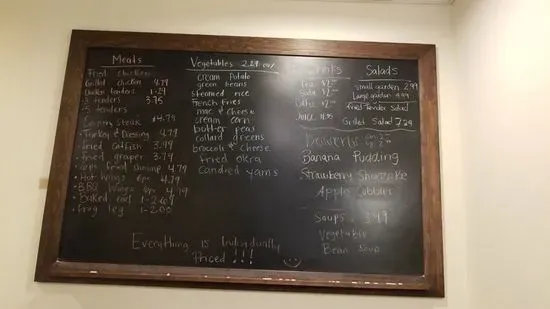 Meats
Fried chicken
Grilled chicken 4.79
Chicken tenders 1.29
3 tenders 3.75
5 tenders
Country Steak $4.79
Turkey & Dressing 4.79
fried catfish 3.99
fried grouper 3.79
fried shrimp 4.79
Hot wings 6pc 4.79
BBQ Wings 6pc 4.79
Baked
frog leg 1-2.00
Vegetables 2.29 ea
cream Potato
green beans
steamed rice
French fries
mac & cheese
cream corn
butter peas
collard greens
broccoli & cheese
fried okra
candied yams
Salads
small garden 2.99
Large garden 4.99
fried Tender Salad
Grilled Salad 7.29
Desserts
Banana Pudding
Strawberry Shortcake
Apple Cobbler
Soups 3.49
Vegetable
Bean Soup
Everything is Individually
Priced !!!